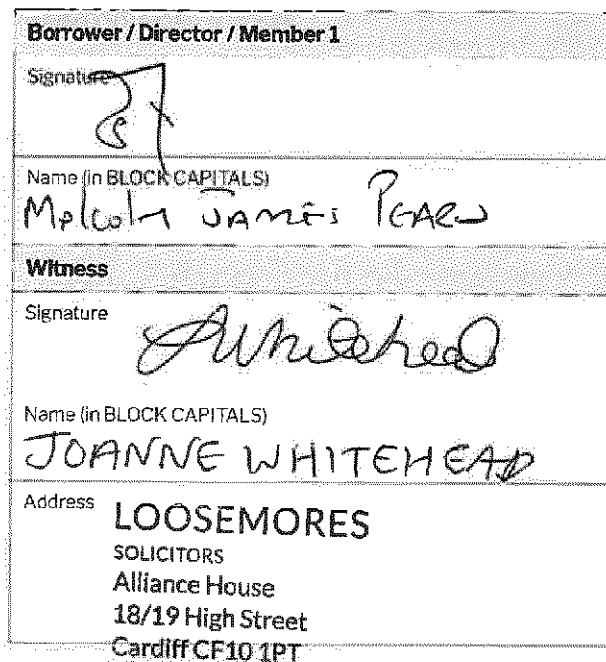 Borrower / Director / Member 1
Signature
Name (in BLOCK CAPITALS)
Malcolm JAMES
Witness
Signature
JWhitehead
Name (in BLOCK CAPITALS)
JOANNE WHITEHEAD
Address
LOOSEMORES
SOLICITORS
Alliance House
18/19 High Street
Cardiff CF10 1PT